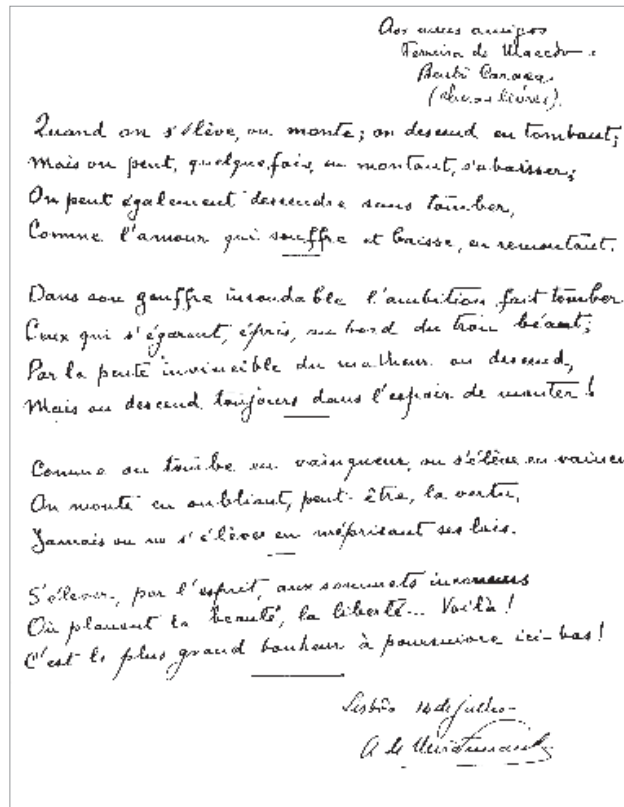 Aos meus amigos
Ferreira de Macedo e
Bento Caraça
Quand on s'élève, on monte; on descend en tombant;
Mais on peut, quelque fois, en montant, s'abaisser;
On peut également descendre sans tomber,
Comme l'amour qui souffre et baisse, en remontant.
Dans son gouffre insondable l'ambition fait tomber
Ceux qui s'égarent, épris, au bord du trou béant;
Par la pente invincible du malheur on descend,
Mais on descend toujours dans l'espoir de monter!
Comme on tombe en vainqueur, on s'élève en vaincu
On monte en oubliant, peut-être, la vertu,
Jamais on ne s'élève en méprisant ses lois.
S'élever, par l'esprit, aux sommets inconnus
Où planent la beauté, la liberté... Voilà!
C'est le plus grand bonheur à poursuivre ici-bas!
Lisbôa 14 de julho
A. de